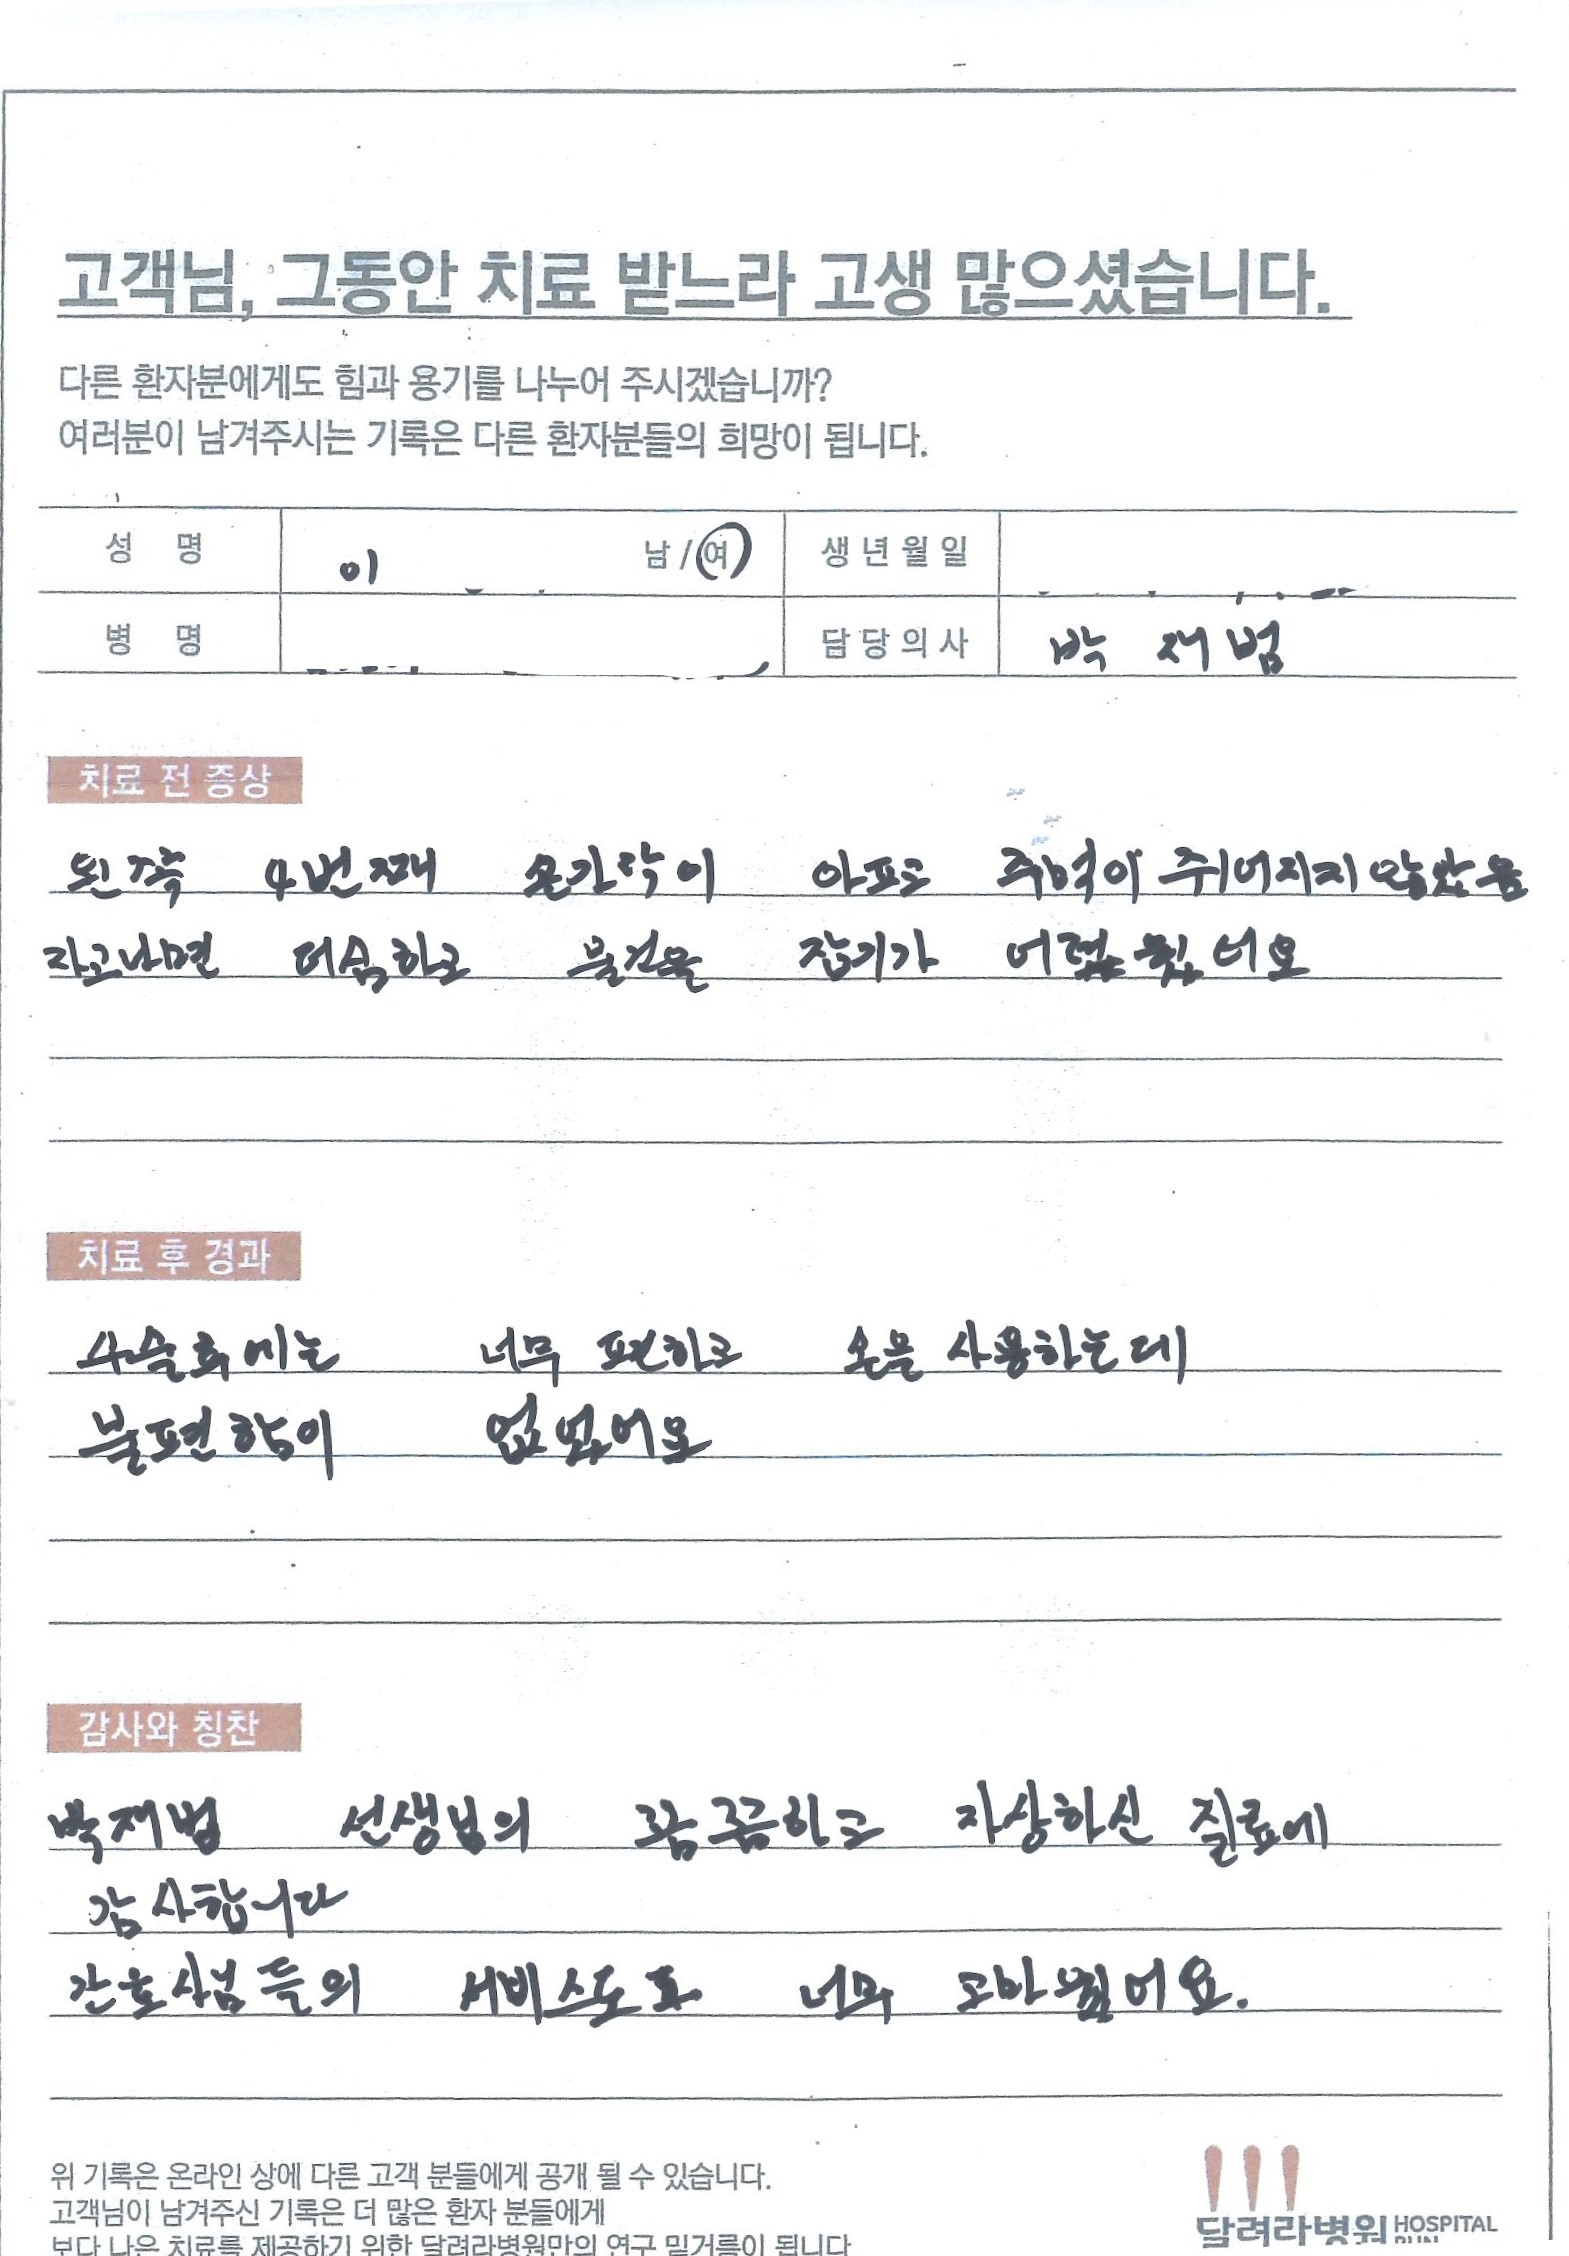 고객님, 그동안 치료 받느라 고생 많으셨습니다.
다른 환자분에게도 힘과 용기를 나누어 주시겠습니까?
여러분이 남겨주시는 기록은 다른 환자분들의 희망이 됩니다.
성 명 이 남 / 여 생년월일
병 명 담당의사 박 재범
치료 전 증상
왼쪽 4번째 손가락이 아프고 주먹이 쥐어지지 않았음
자고나면 더심하고 물건을 잡기가 어려웠어요
치료 후 경과
수술후에는 너무 편하고 손을 사용하는데
불편함이 없었어요
감사와 칭찬
박재범 선생님의 꼼꼼하고 자상하신 진료에
감사합니다
간호사님들의 서비스도 너무 고마웠어요.
위 기록은 온라인 상에 다른 고객 분들에게 공개 될 수 있습니다.
고객님이 남겨주신 기록은 더 많은 환자 분들에게
보다 나은 치료를 제공하기 위한 달려라병원만의 연구 밑거름이 됩니다
달려라병원 HOSPITAL RUN